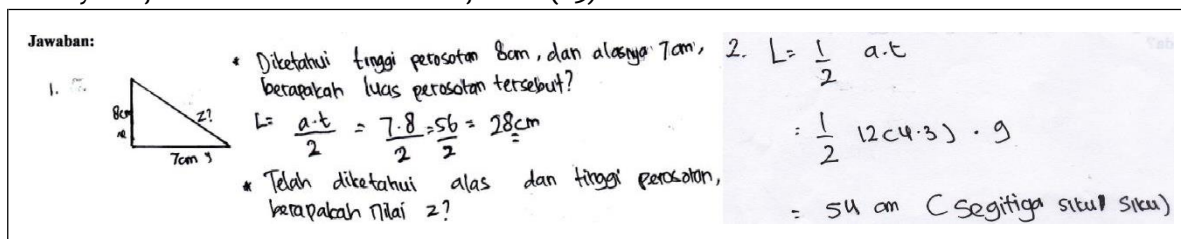 Jawaban:
1.
8cm
x
z?
7cm y
* Diketahui tinggi perosotan 8cm, dan alasnya 7cm,
berapakah luas perosotan tersebut?
L = a.t / 2 = 7.8 / 2 = 56 / 2 = 28cm
* Telah diketahui alas dan tinggi perosotan,
berapakah nilai z?
2. L = 1/2 a.t
= 1/2 12(4.3) . 9
= 54 cm (segitiga siku siku)